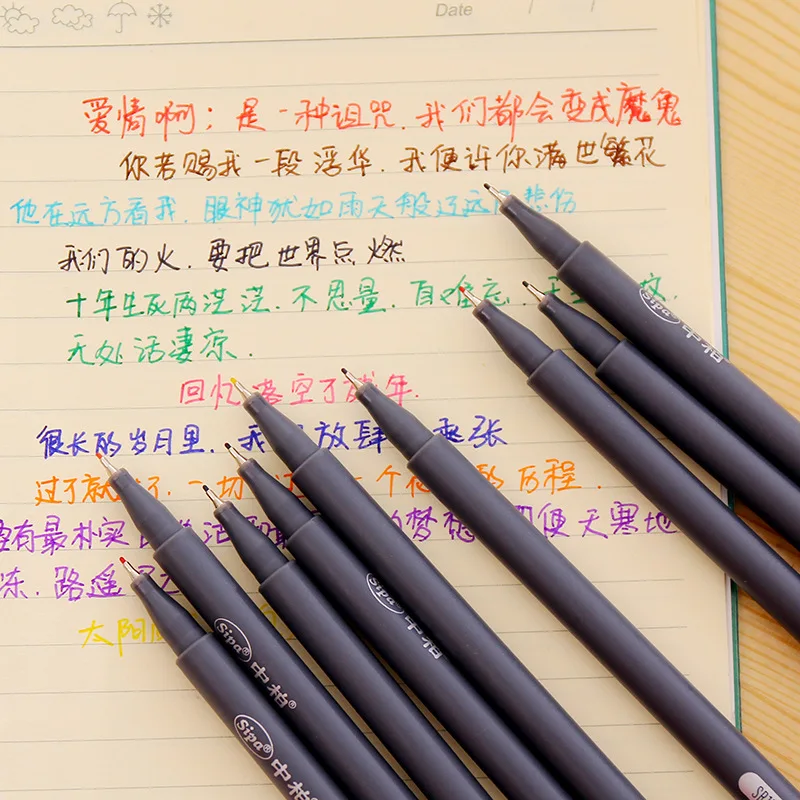 Date / /
爱情啊;是一种诅咒.我们都会变成魔鬼
你若赐我一段浮华.我便许你满世繁花
他在远方看我.眼神犹如雨天般辽远 悲伤
我们的火.要把世界点燃
十年生死两茫茫.不思量.自难忘.
无处话凄凉.
回忆落空了 年.
很长的岁月里.我 放肆 嚣张
过了就 了.一切 一个 的历程.
有最朴实 的梦想 即便天寒地
冻.路遥
太阳
Sipa® 中柏
Sipa® 中柏®
Sipa® 中柏
Sipa® 中柏®